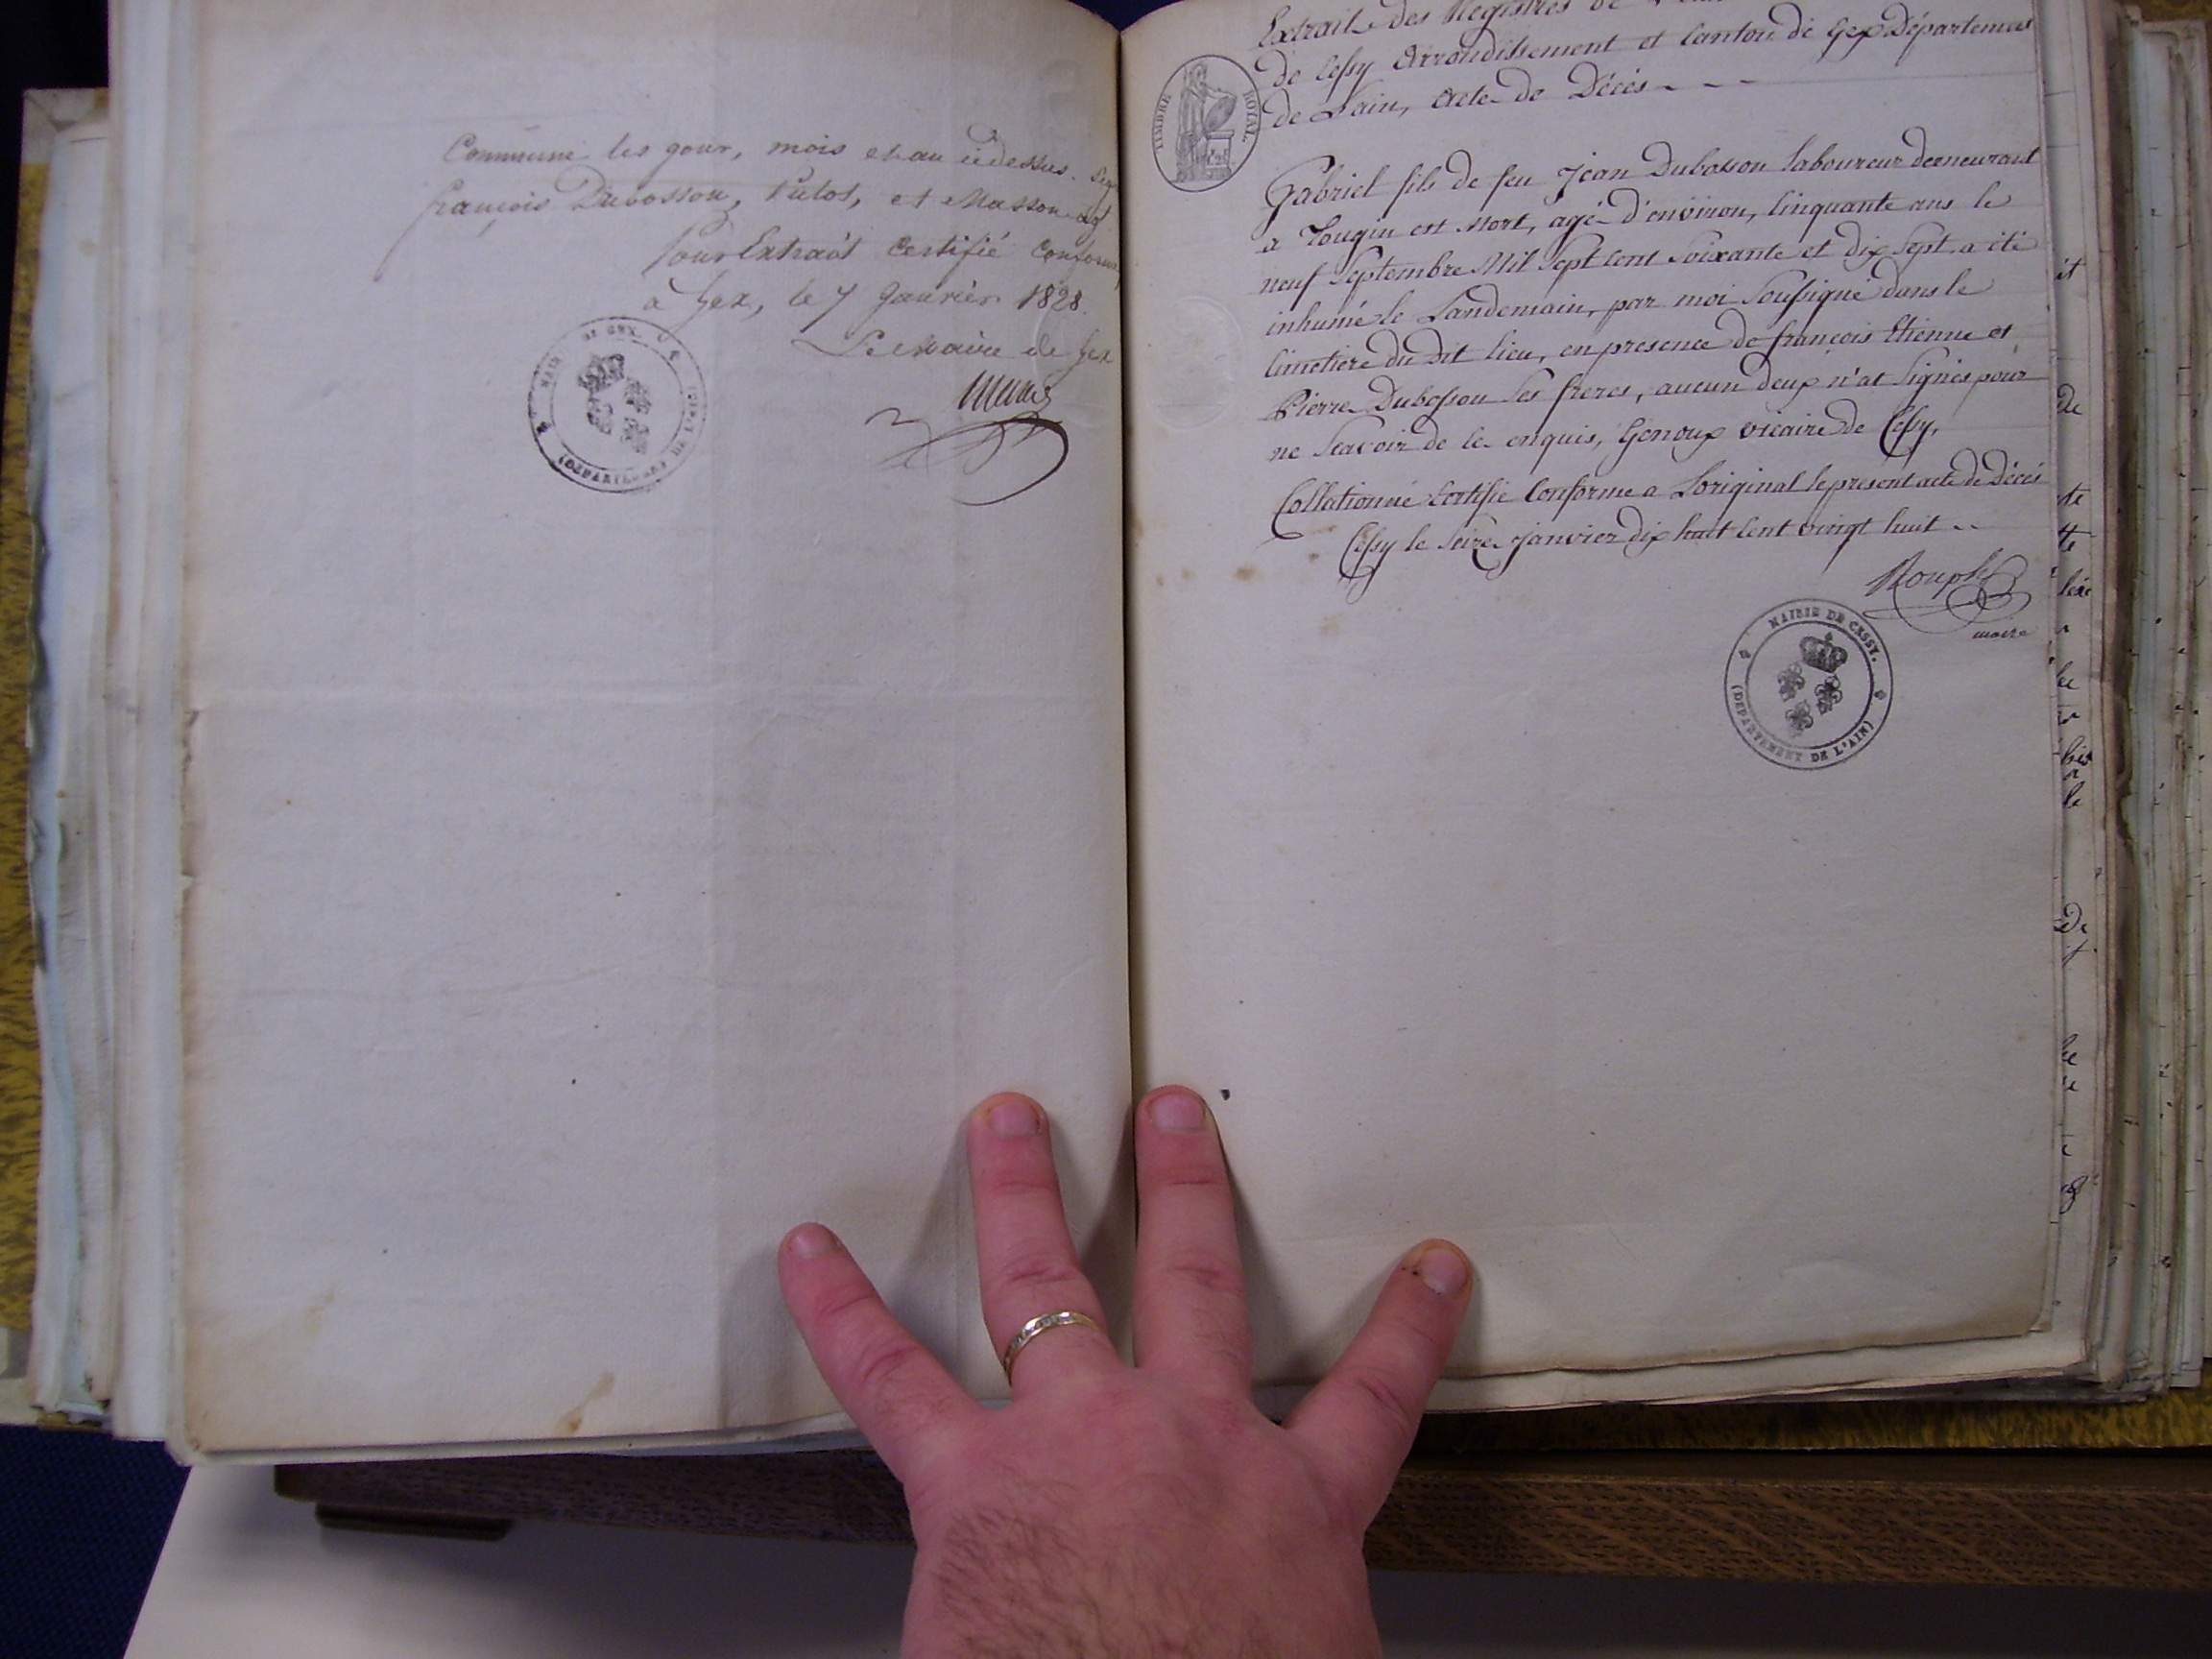 Commune les jour, mois et an ci dessus.
françois Dubosson, Vulot, et Masson
Pour Extrait certifié conforme
à Gex, le 7 Janvier 1828.
Le Maire de Gex
Extrait des Registres de
de Cessy Arrondissement et Canton de Gex Département
de L'ain, Acte de Décés
TIMBRE ROYAL
Gabriel fils de feu Jean Dubosson Laboureur demeurant
a Tougin est Mort, agé d'environ, Cinquante ans le
neuf Septembre Mil Sept Cent Soixante et dix Sept a été
inhumé le Landemain, par moi Soussigné dans le
Cimetiere du dit lieu, en presence de françois Etienne et
Pierre Dubosson Ses freres, aucun deux n'at Signés pour
ne Scavoir de ce enquis, Genoux vicaire de Cessy.
Collationné Certifié Conforme a Loriginal le present acte de Décés
Cessy le Seize Janvier dix huit Cent vingt huit
Rouph
maire
MAIRIE DE CESSY.
(DEPARTEMENT DE L'AIN)